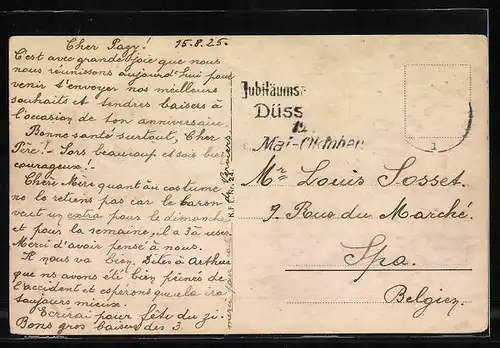 Cher Papy! 15.8.25.
C'est avec grande joie que nous
nous réunissons aujourd'hui pour
venir t'envoyer nos meilleurs
souhaits et tendres baisers à
l'occasion de ton anniversaire.
Bonne santé surtout, Cher
Père! - Sors beaucoup et sois bien
courageux! -
Chère Mère quant au costume
ne le retiens pas car le baron
veut un extra pour le dimanche
et pour la semaine, il a 3 à user.
Merci d'avoir pensé à nous.
Il nous va bien. Dites à Arthur
que ns avons été bien peinés de
l'accident et espérons que cela ira
toujours mieux.
Ecrirai pour fête du
Bons gros baisers des 3.
merci
Jubiläums-
Düss
Mai-Oktober
Mr Louis Sosset.
9. Rue du Marché.
Spa.
Belgien.